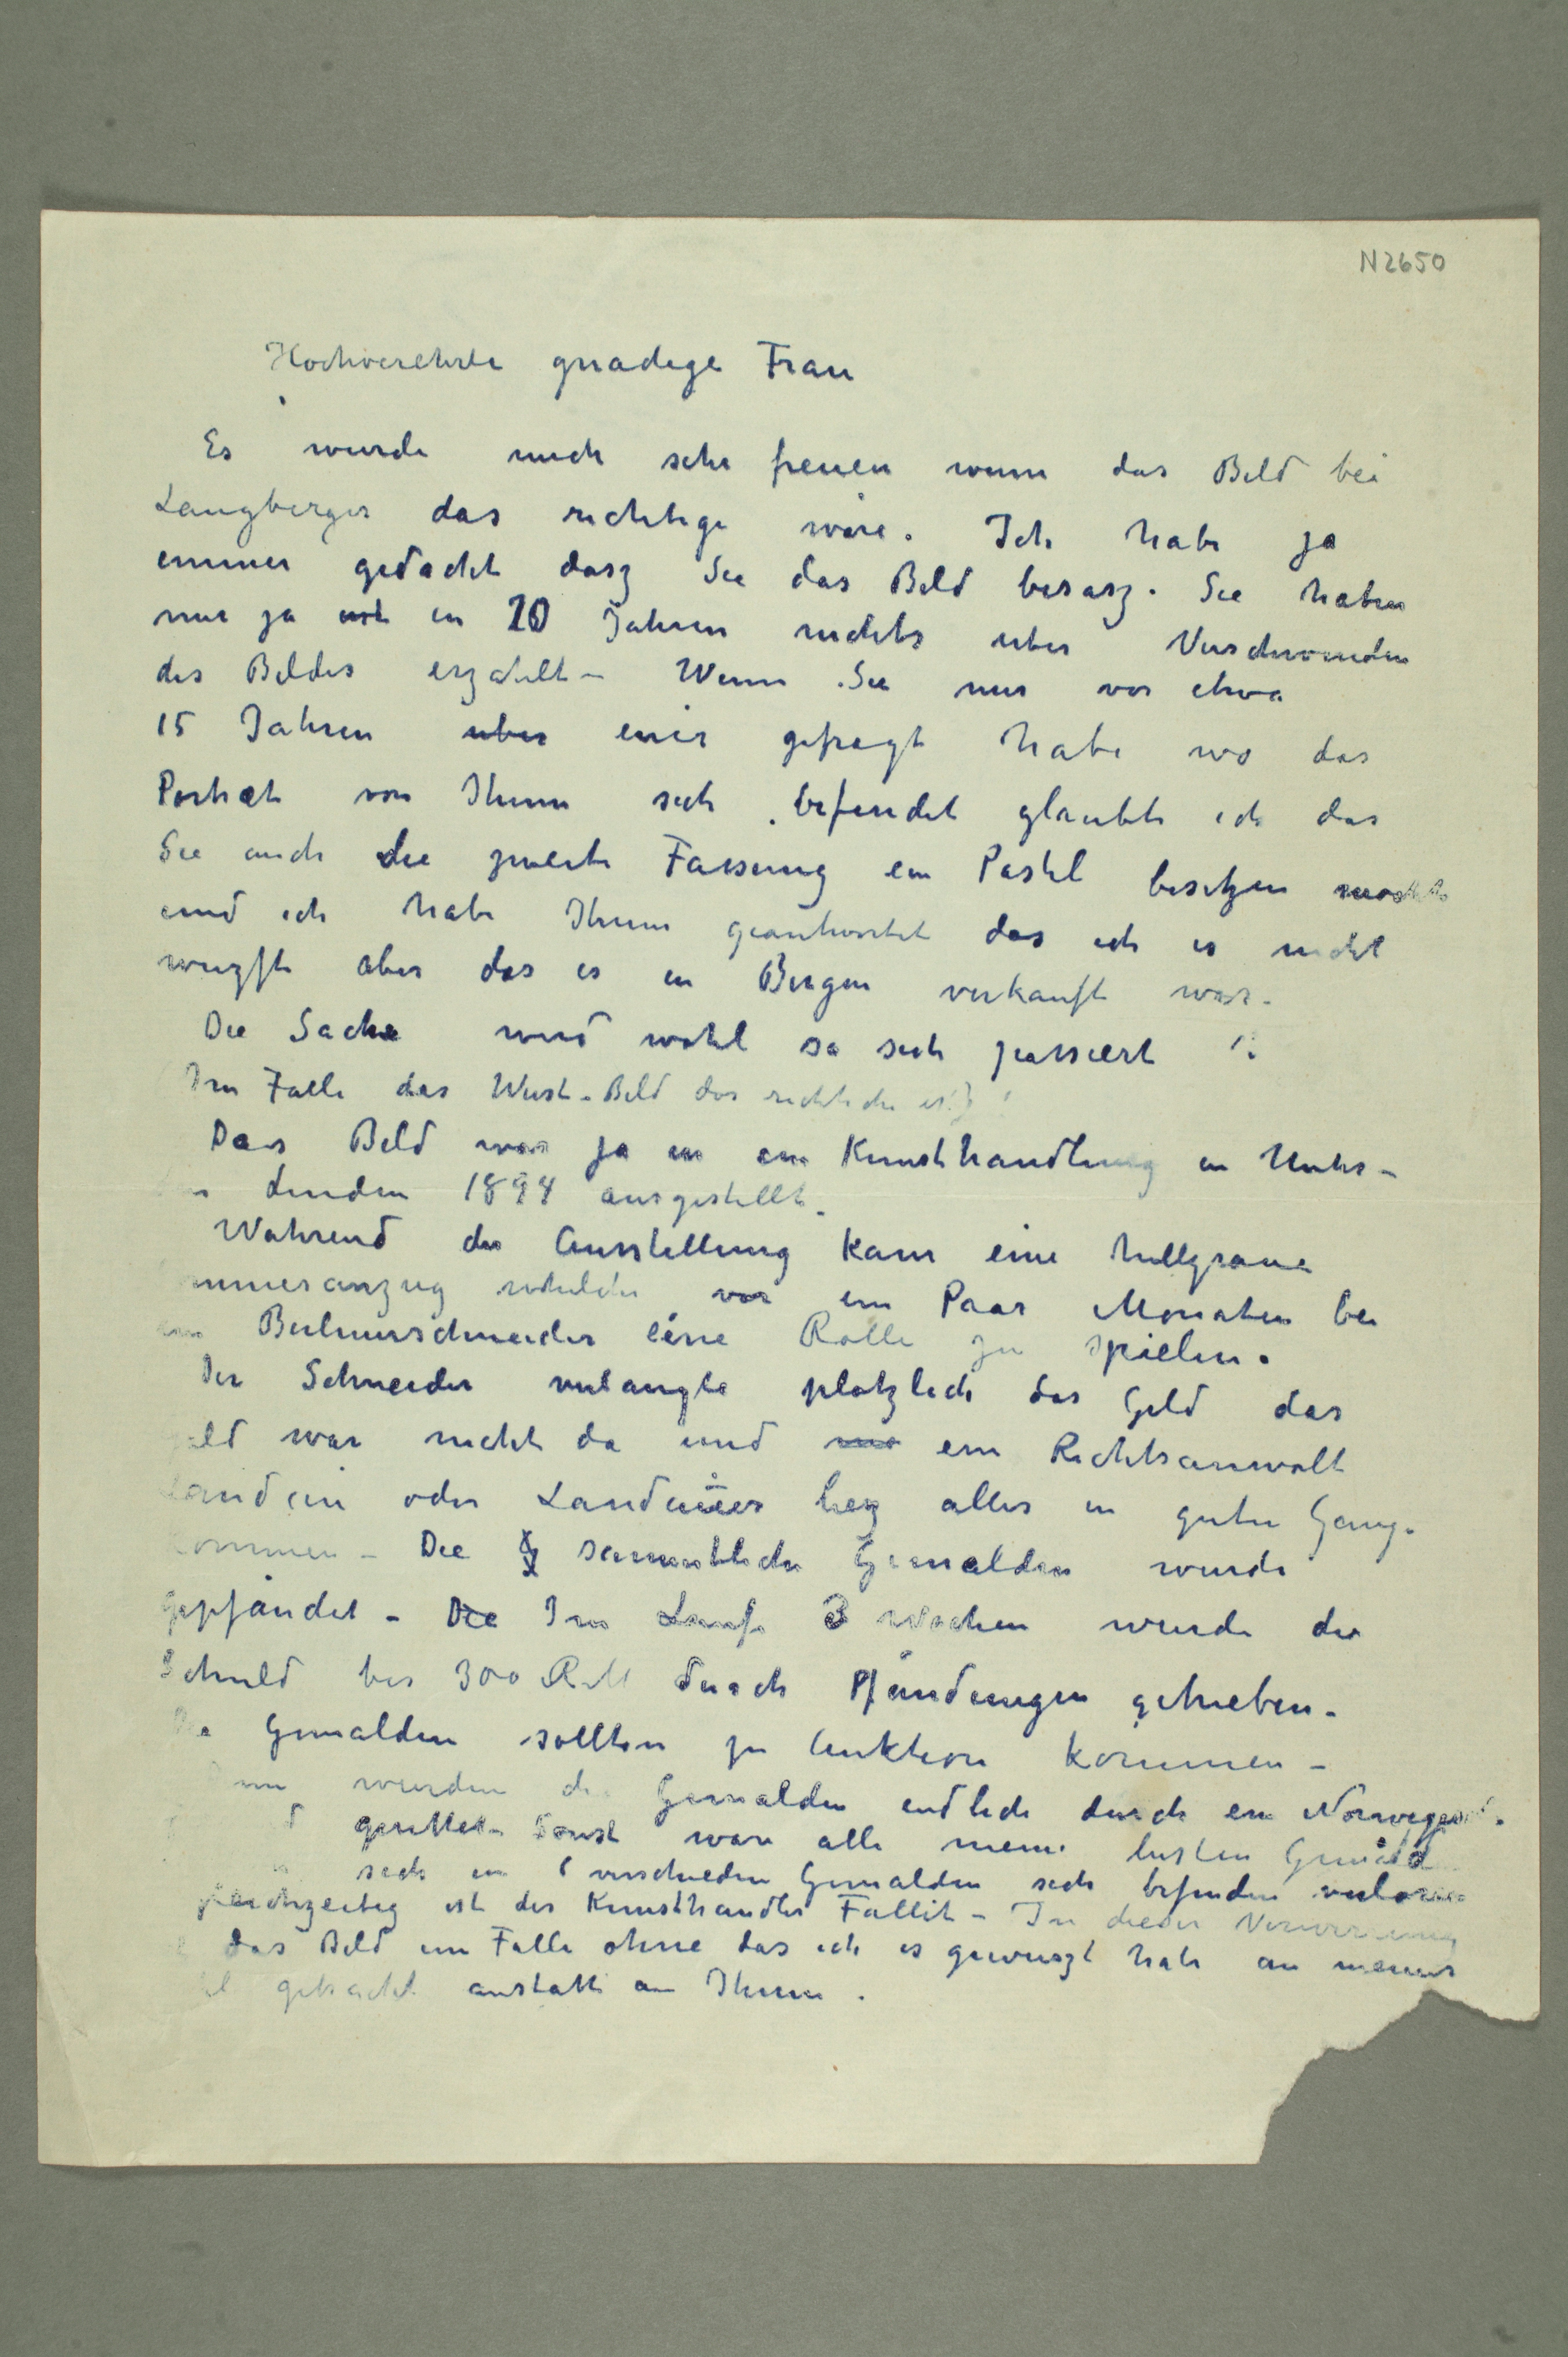 N2650
Hochverehrte gnadige Frau
Es wurde mich sehr freuen wenn das Bild bei
Langberger das richtige wäre. Ich habe ja
immer gedacht dasz Sie das Bild besasz. Sie haben
mir ja in 20 Jahren nichts uber Verschwinden
des Bildes erzahlt – Wenn Sie mir vor etwa
15 Jahren uber gefragt habe wo das
Portræt von Ihnen sich befindet glaubte ich das
Sie auch die zweite Fassung ein Pastel besitzen mochte
und ich habe Ihnen geantwortet das ich es nicht
wuszte aber das es in Bergen verkauft war.
Die Sache wird wohl so sich passiert
Im Falle das Bild das richtiche ist)
Das Bild war ja in ein Kunsthandlung in Unter-
Linden 1894 ausgestellt.
Wahrend der Ausstellung kam eine hellgraue
welcher vor ein Paar Monaten bei
Berlinerschneider eine Rolle zu spielen.
Der Schneider verlangte plotzlich das Geld das
war nicht da und ein Rechtsanwalt
oder liesz alles in guter Gang.
kommen – Die sammtliche Gemalden wurde
gepfändet – Die Im Laufe 3 Wochen wurde die
Schuld bis 300 RM durch Pfändungen getrieben.
Gemalden sollten zu Auktion kommen –
wurden die Gemalden endlich durch ein Norweger
gerettet – Sonst war alle meine besten
sich in 6 verschieden Gemalden sich befinden verloren
gleichzeitig ist der Kunsthandler Fallit – In dieser Verwirrung
das Bild im Falle ohne das ich es gewuszt habe an meines
gebracht anstatt an Ihnen.